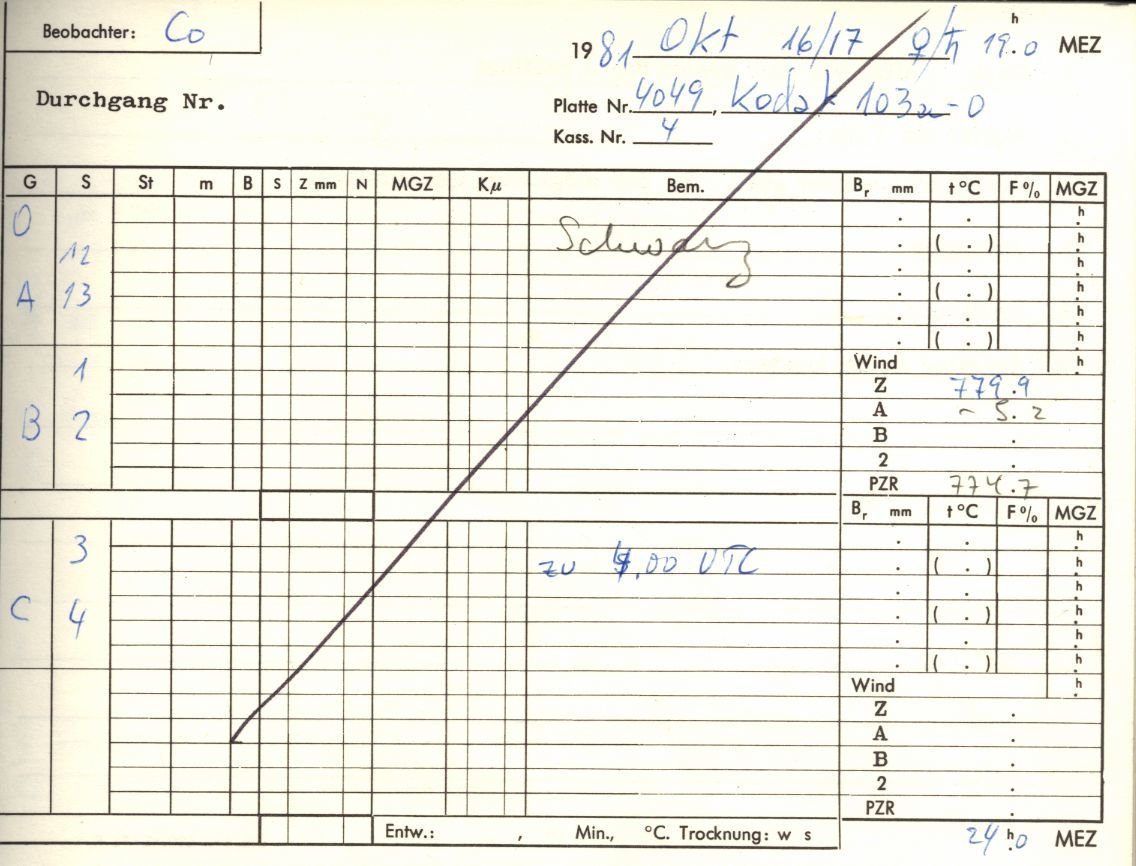 Beobachter: Co
1981 Okt 16/17 ♀/♄ 19ʰ.0 MEZ
Durchgang Nr.
Platte Nr. 4049, Kodak 103a-O
Kass. Nr. 4
G S St m B S Z mm N MGZ Kμ Bem. Bᵣ mm t °C F % MGZ
O . . h
12 Schwarz . ( . ) h
. . h
A 13 . ( . ) h
. . h
. ( . ) h
1 Wind h
Z 779.9
B 2 A - 5.2
B .
2 .
PZR 774.7
Bᵣ mm t °C F % MGZ
3 . . h
zu 4.00 UTC . ( . ) h
. . h
C 4 . ( . ) h
. . h
. ( . ) h
Wind h
Z .
A .
B .
2 .
PZR .
Entw.: , Min., °C. Trocknung: w s
24ʰ.0 MEZ